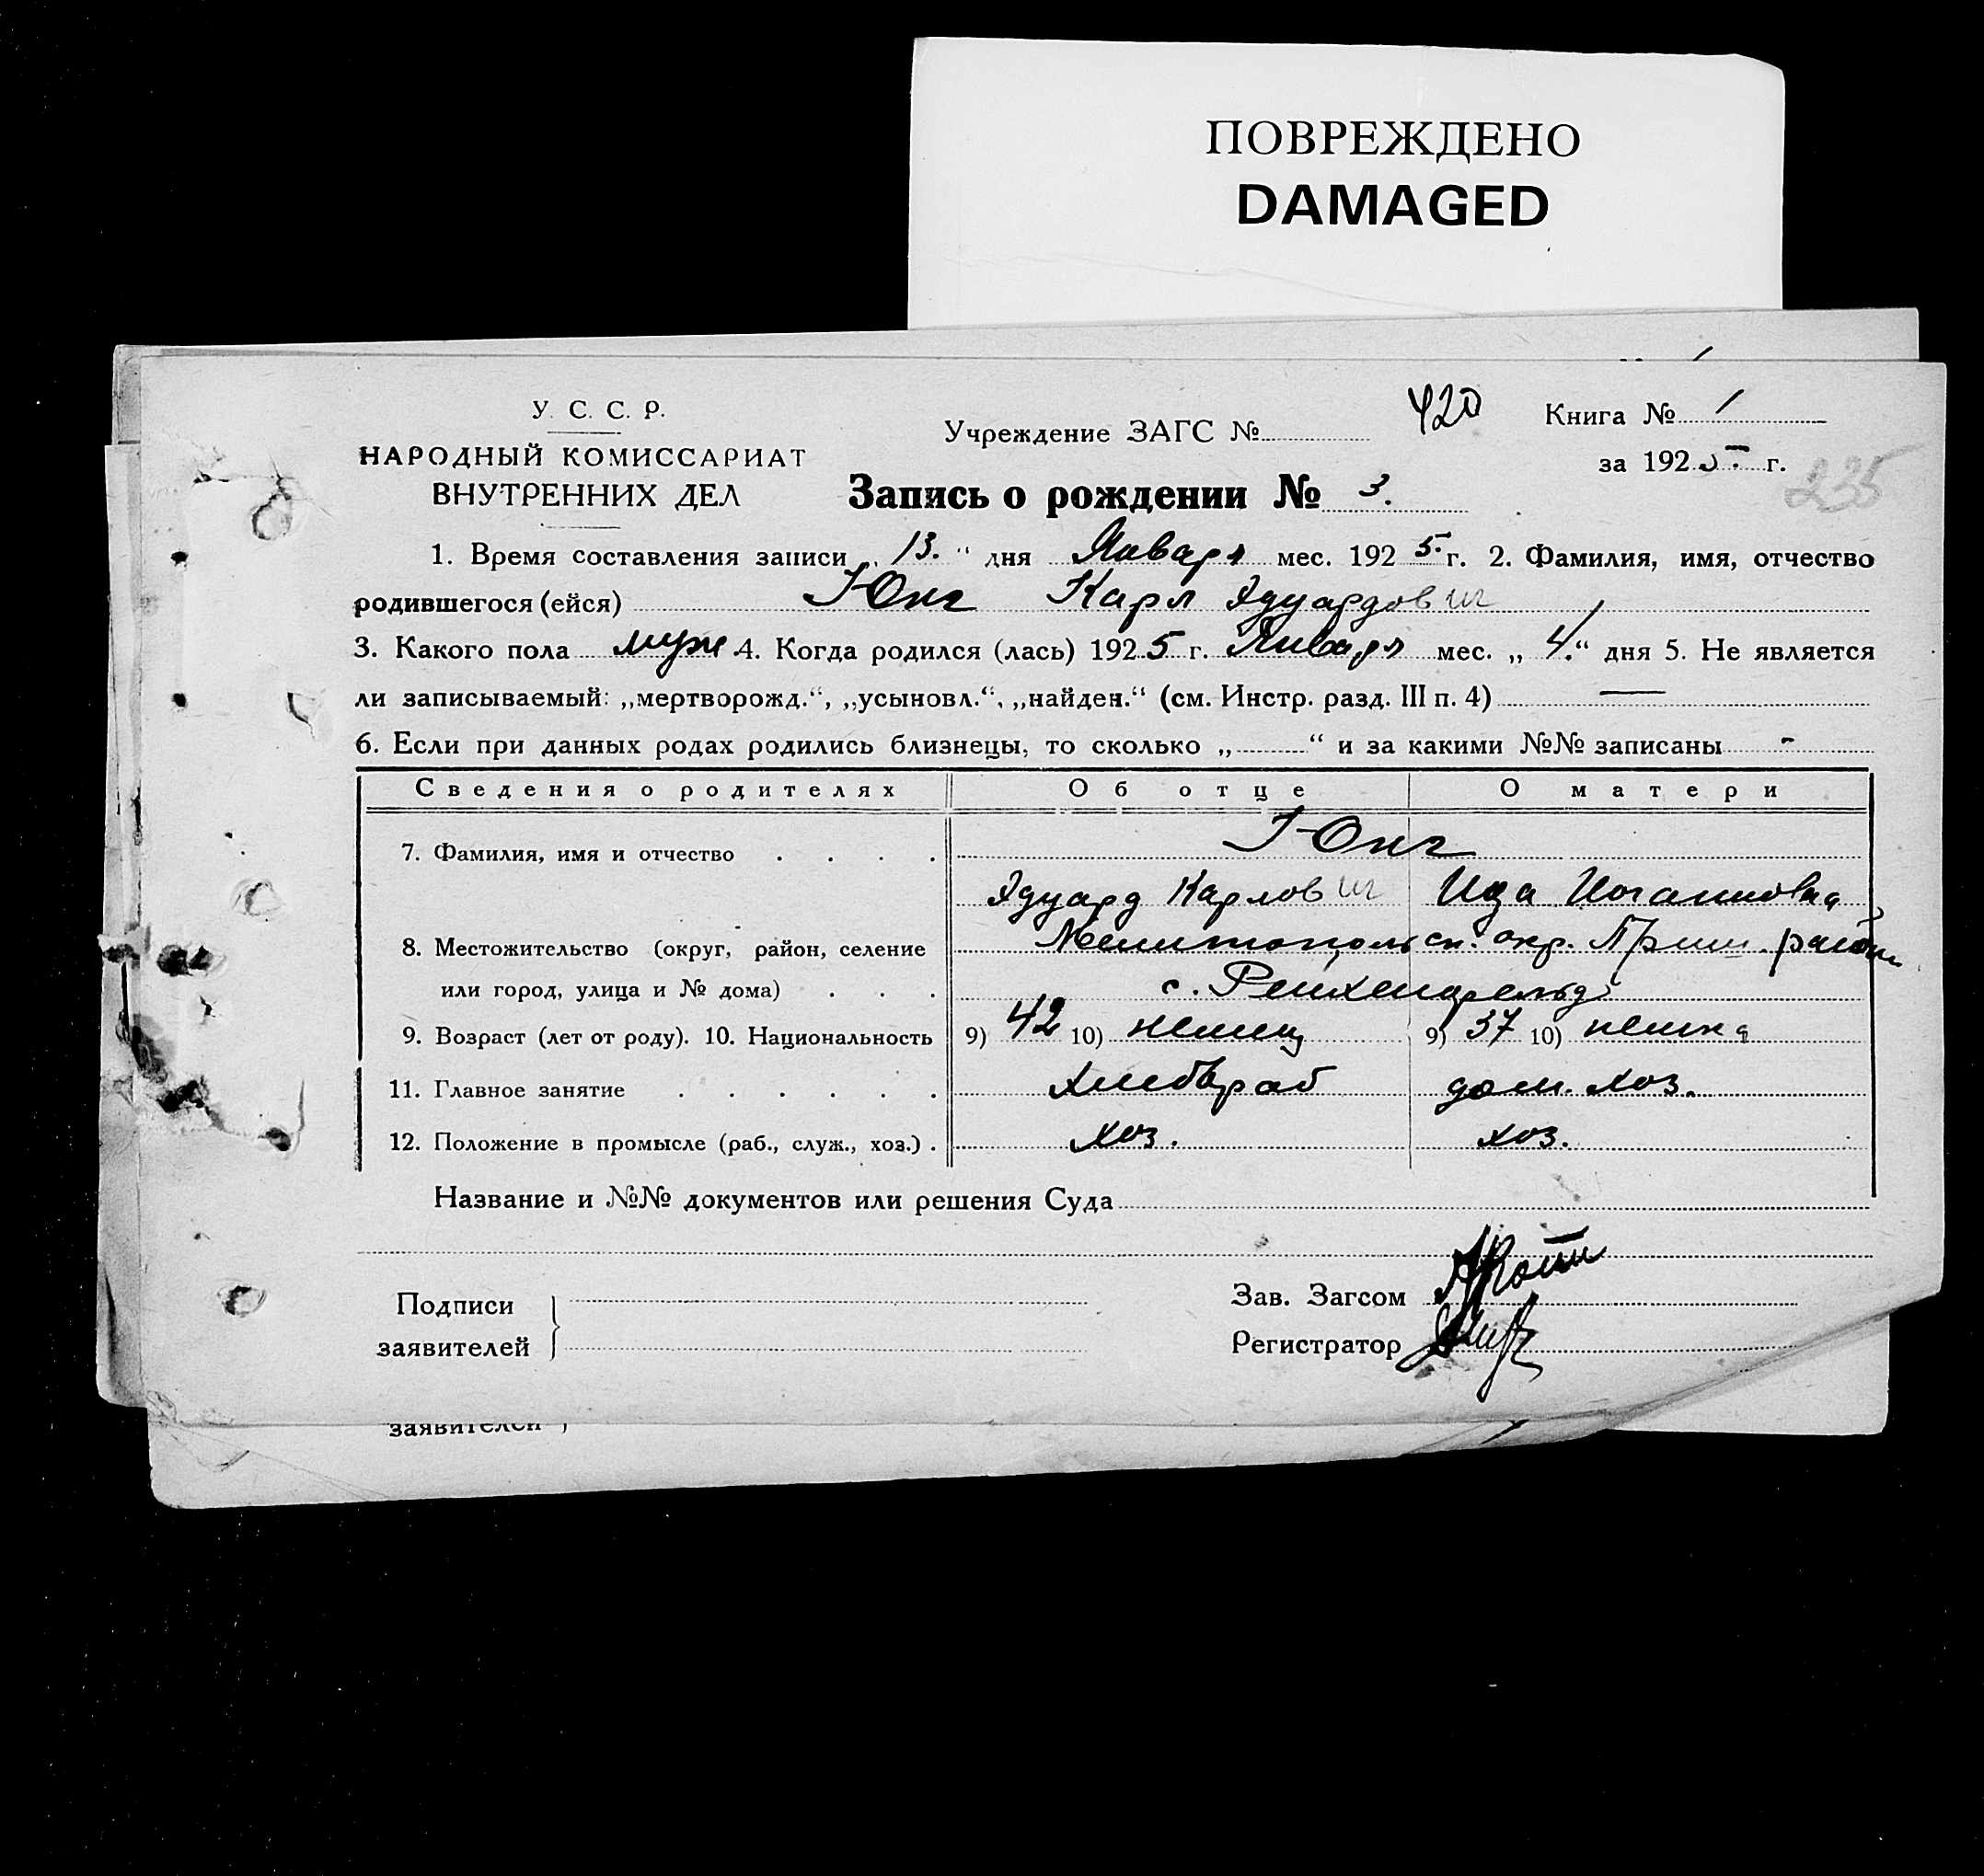 ПОВРЕЖДЕНО
DAMAGED
У. С. С. Р.
НАРОДНЫЙ КОМИССАРИАТ
ВНУТРЕННИХ ДЕЛ
Учреждение ЗАГС № 420
Книга № 1
за 1925 г.
235
Запись о рождении № 3.
1. Время составления записи „ 13. “ дня Января мес. 1925. г. 2. Фамилия, имя, отчество
родившегося (ейся) Юнг Карл Эдуардович
3. Какого пола муж. 4. Когда родился (лась) 1925 г. Января мес. „ 4. “ дня 5. Не является
ли записываемый: „мертворожд.“, „усыновл.“, „найден.“ (см. Инстр. разд. III п. 4) —
6. Если при данных родах родились близнецы, то сколько „ “ и за какими №№ записаны -
Сведения о родителях Об отце О матери
7. Фамилия, имя и отчество Юнг
Эдуард Карлович Ида Иоганновна
8. Местожительство (округ, район, селение Мелитопольск. окр. Пришиб. район
или город, улица и № дома) с. Рейхенфельд
9. Возраст (лет от роду). 10. Национальность 9) 42 10) немец 9) 37 10) немка
11. Главное занятие Хлебораб дом. хоз.
12. Положение в промысле (раб., служ., хоз.) хоз. хоз.
Название и №№ документов или решения Суда
Подписи
заявителей
Зав. Загсом
Регистратор
заявителей